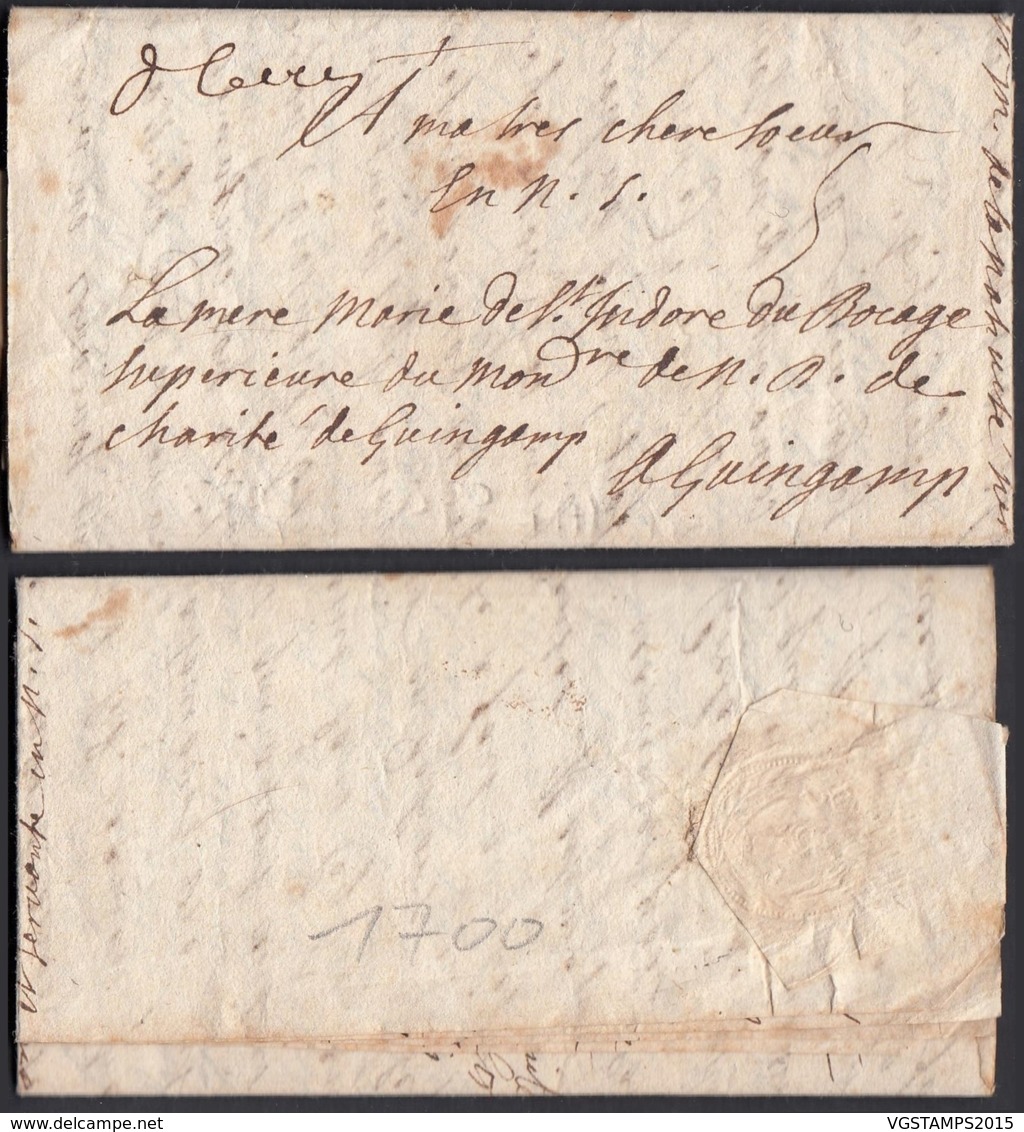 A ma tres chere soeur
en n. s.
5
La mere Marie de St. Isidore du Bocage
superieure du mon re de n. D. de
charité de Guingamp
A Guingamp
de la nativité
et servante en n. s.
1700
www.delcampe.net
VGSTAMPS2015